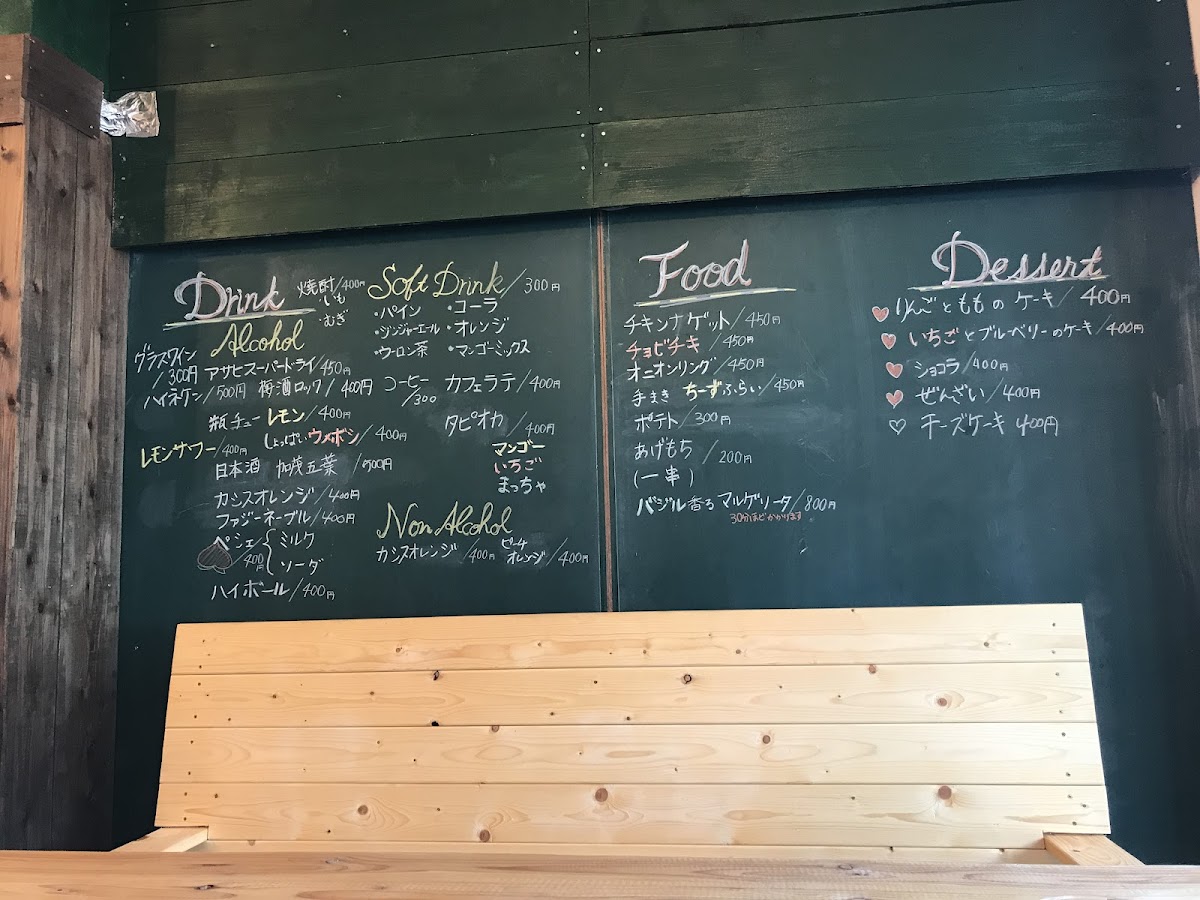 Drink
焼酎/400円
・いも
・むぎ
Alcohol
グラスワイン
/300円
アサヒスーパードライ/450円
ハイネケン/500円
梅酒ロック/400円
瓶チューレモン/400円
レモンサワー/400円
しょっぱいウメボシ/400円
日本酒 加茂五葉/500円
カシスオレンジ/400円
ファジーネーブル/400円
ペシェ/400円 { ミルク
ソーダ
ハイボール/400円
Soft Drink/300円
・パイン
・コーラ
・ジンジャーエール
・オレンジ
・ウーロン茶
・マンゴーミックス
コーヒー/300
カフェラテ/400円
タピオカ/400円
マンゴー
いちご
まっちゃ
Non Alcohol
カシスオレンジ/400円
ピーチオレンジ/400円
Food
チキンナゲット/450円
チョビチキ/450円
オニオンリング/450円
手まきちーずふらい/450円
ポテト/300円
あげもち/200円
(一串)
バジル香るマルゲリータ/800円
30分ほどかかります
Dessert
りんごとももの ケーキ/400円
いちごとブルーベリーのケーキ/400円
ショコラ/400円
ぜんざい/400円
チーズケーキ 400円